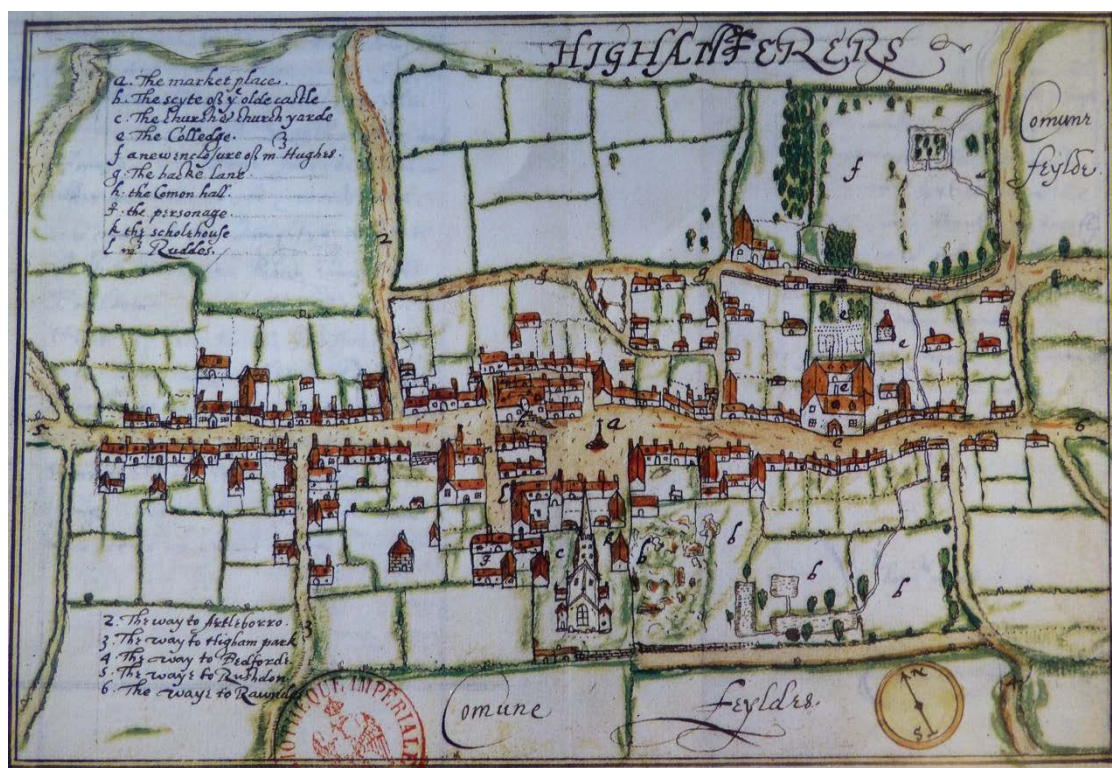 HIGHAM FERERS
a. The market place.
b. The scyte of yᵉ olde castle
c. The church & church yarde
e. The Colledge.
f a new enclosure of mʳ Hughes.
g. The backe lane.
h. the Comon hall.
f. the personage.
k the scholehouse
l. mʳ Ruddes.
Comune
feylde.
f
2
g
g
e
e
e
e
a
h
5
6
l
c
k
b
b
b
b
f
3
2. The way to Artleborro.
3. The way to Higham park
4 The way to Bedforde
5. The waye to Rushdon
6. The waye to Raunde
Comune
Feyldes.
N
S
BIBLIOTHEQUE IMPERIALE